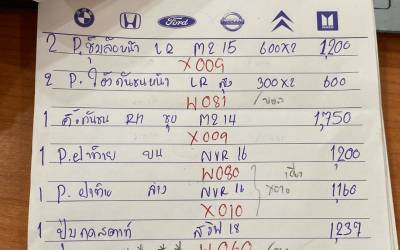 HONDA Ford NISSAN
2 P. ซุ้มล้อหน้า LR M2 15 600x2 1,200
X009
2 P. ใต้กันชนหน้า LR สูง 300x2 600
W081
1 กันชน M2 14 1,750
X009
1 P. ฝาท้าย บน NVR 16 1,200
W080
1 P. ฝาท้าย ล่าง NVR 16 X010 1,160
X010
1 ปุ่มกดสตาร์ท 18 1,237
W060